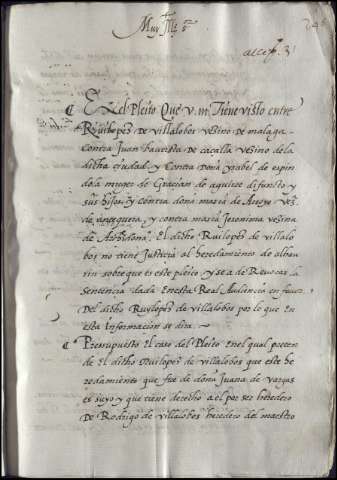 Muy Ille sr
En el pleito Que v.m. Tiene visto entre
Ruilopez de villalobos vezino de malaga
Contra Juan bautista de cazalla vezino de la
dicha ciudad, y contra doña ysabel de espin
dola muger de Gracian de aguirre difunto y
sus hijos, y contra doña maria de Arroyo vez
de antequera, y contra maria Jeronima vezina
de Archidona. El dicho Ruilopez de villalo
bos no tiene Justicia al heredamiento de alhau
rin sobre que es este pleito, y se a de Revocar la
sentencia dada en esta Real Audiencia en favor
Del dicho Ruylopez de villalobos por lo que en
esta Informacion se dira.
Presupuesto El caso del Pleito en el qual preten
de El dicho Ruilopez de villalobos que este he
redamiento que fue de doña Juana de vargas
es suyo y que tiene derecho a el por ser heredero
de Rodrigo de villalobos heredero del maestro